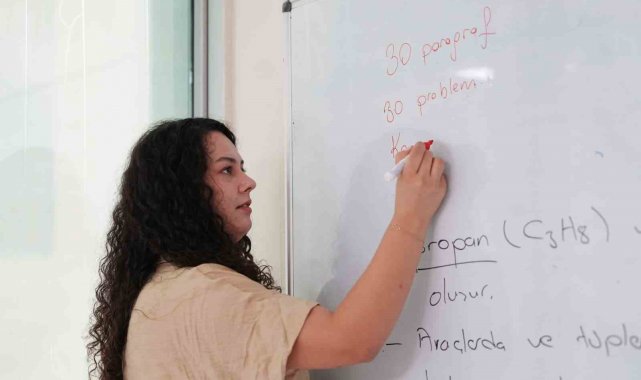 30 paragraf
30 problem
K
propan (C3H8)
oluşur.
- Araçlarda ve tüple